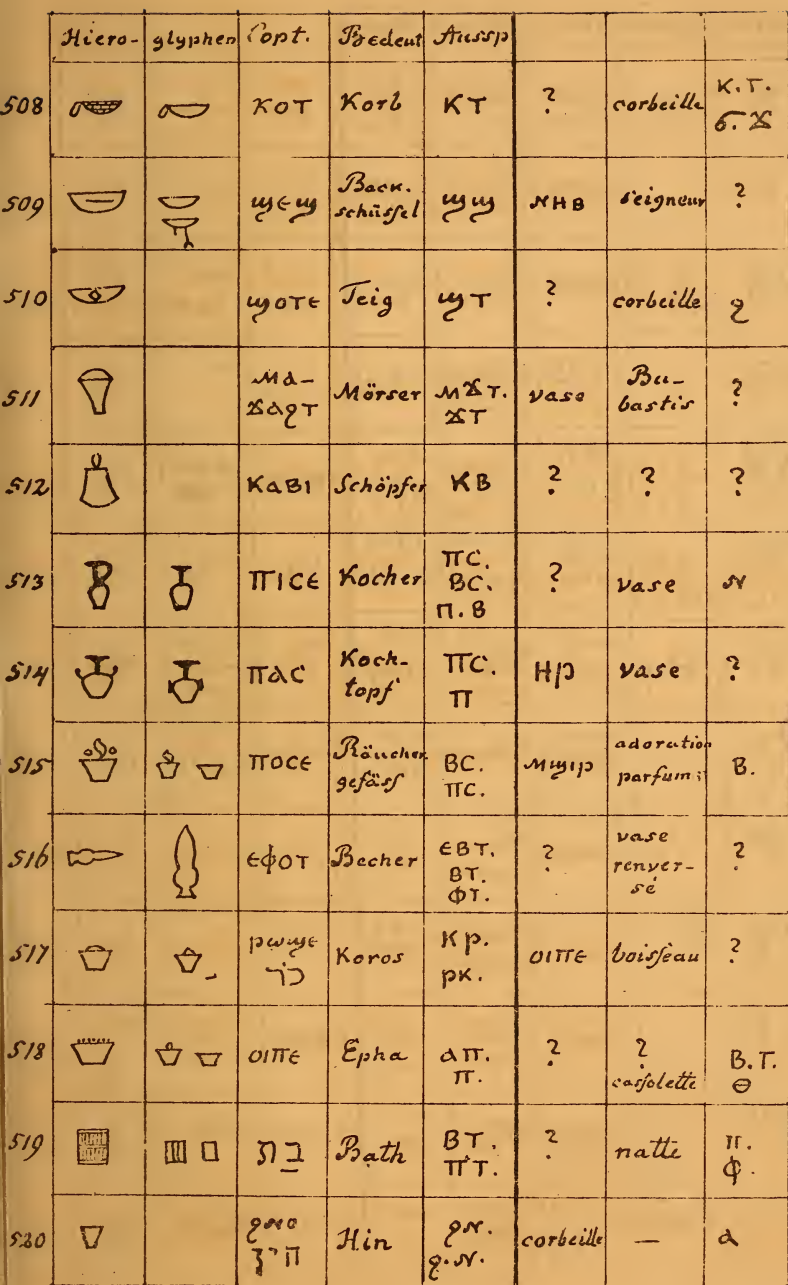 Hiero- glyphen Copt. Bedeut Aussp
508 ⲕⲟⲧ Korb ⲕⲧ ? corbeille ⲕ.ⲧ.
ϭ.ϫ
509 ϣⲉϣ Back-
schüssel ϣϣ ⲛⲏⲃ seigneur ?
510 ϣⲟⲧⲉ Teig ϣⲧ ? corbeille ϩ
511 ⲙⲁ-
ϫⲁϩⲧ Mörser ⲙϫⲧ.
ϫⲧ vase Bu-
bastis ?
512 ⲕⲁⲃⲓ Schöpfer ⲕⲃ ? ? ?
513 ⲡⲓⲥⲉ Kocher ⲡⲥ.
ⲃⲥ.
ⲡ.ⲃ ? vase ⲛ
514 ⲡⲁⲥ Koch-
topf ⲡⲥ.
ⲡ ⲏⲣⲡ vase ?
515 ⲡⲟⲥⲉ Räucher
gefäss ⲃⲥ.
ⲡⲥ. adoration
parfums ⲃ.
516 ⲉⲫⲟⲧ Becher ⲉⲃⲧ.
ⲃⲧ.
ⲫⲧ. ? vase
renver-
sé ?
517 ⲣⲱϣⲉ
כֹר Koros ⲕⲣ.
ⲣⲕ. ⲟⲓⲡⲉ boisseau ?
518 ⲟⲓⲡⲉ Epha ⲁⲡ.
ⲡ. ? ?
cassolette ⲃ.ⲧ.
ⲑ
519 בַת Bath ⲃⲧ.
ⲡⲧ. ? natte ⲡ.
ⲫ.
520 הין Hin ϩⲛ.
ϩ.ⲛ. corbeille — ⲁ